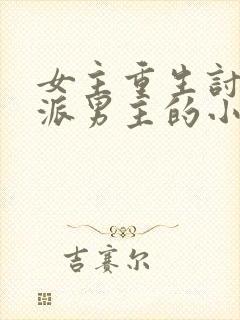 女主重生討
派男主的小
吉赛尔